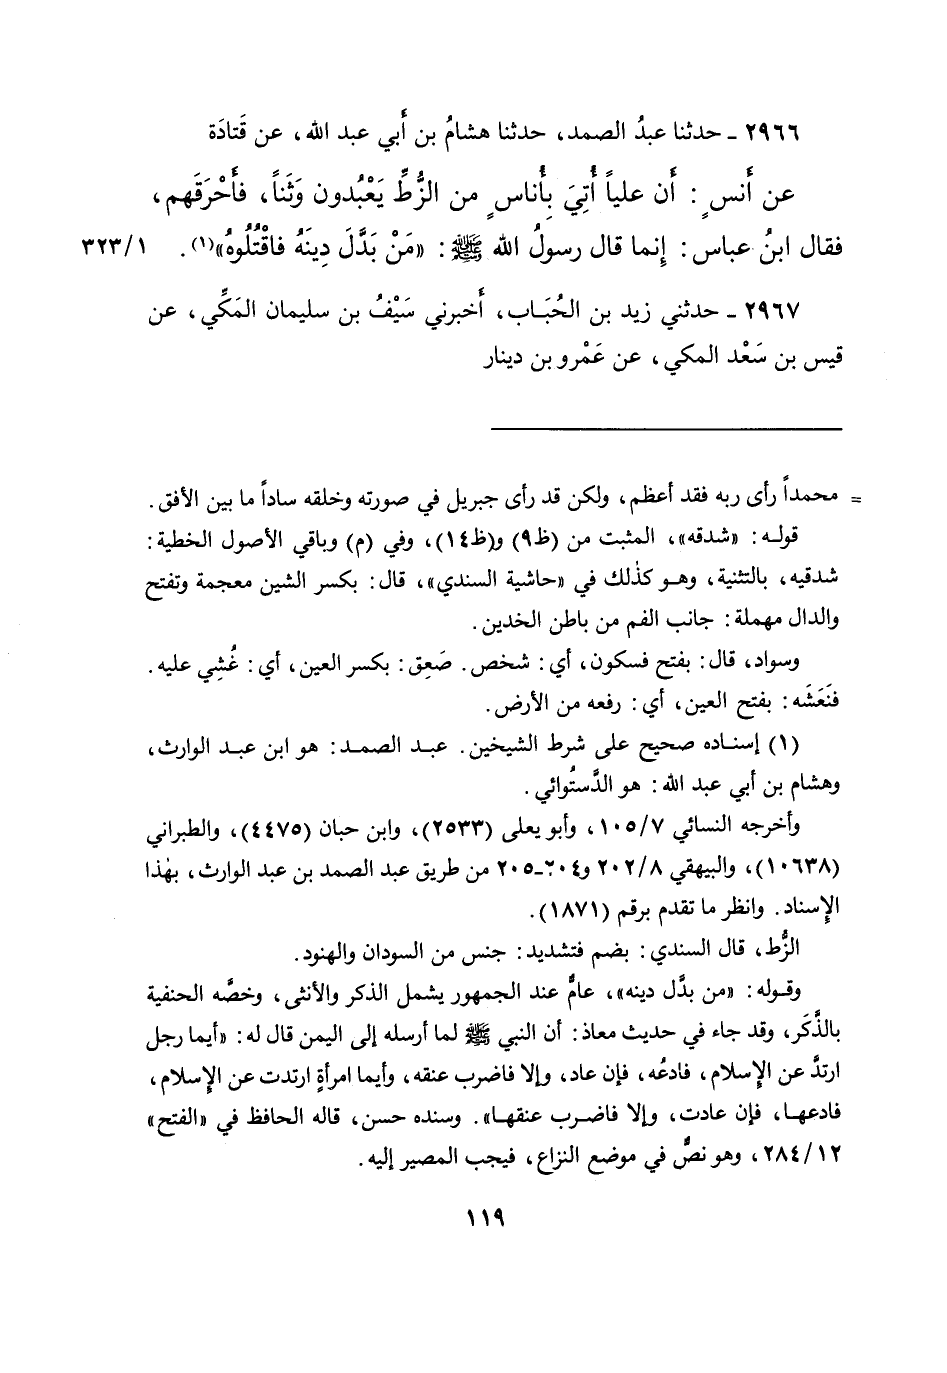 ٢٩٦٦ ـ حدثنا عبدُ الصمد، حدثنا هشامُ بن أَبي عبد الله، عن قَتادَة
عن أَنس ٍ: أَن علياً أُتِيَ بِأُناس ٍ من الزُّطِّ يَعْبُدون وَثَناً، فأَحْرَقَهم،
فقال ابنُ عباس: إنما قال رسولُ الله ﷺ: «مَنْ بَدَّلَ دِينَهُ فاقْتُلُوهُ»(١). ٣٢٣/١
٢٩٦٧ ـ حدثني زيد بن الحُبَاب، أَخبرني سَيْفُ بن سليمان المَكِّي، عن
قيس بن سَعْد المكي، عن عَمْرو بن دينار
= محمداً رأى ربه فقد أعظم، ولكن قد رأى جبريل في صورته وخلقه ساداً ما بين الأفق.
قوله: «شدقه»، المثبت من (ظ٩) و(ظ١٤)، وفي (م) وباقي الأصول الخطية:
شدقيه، بالتثنية، وهو كذٰلك في «حاشية السندي»، قال: بكسر الشين معجمة وتفتح
والدال مهملة: جانب الفم من باطن الخدين.
وسواد، قال: بفتح فسكون، أي: شخص. صَعِق: بكسر العين، أي: غُشِي عليه.
فنَعَشَه: بفتح العين، أي: رفعه من الأرض.
(١) إسناده صحيح على شرط الشيخين. عبد الصمد: هو ابن عبد الوارث،
وهشام بن أبي عبد الله: هو الدَّستُوائي.
وأخرجه النسائي ١٠٥/٧، وأبو يعلى (٢٥٣٣)، وابن حبان (٤٤٧٥)، والطبراني
(١٠٦٣٨)، والبيهقي ٢٠٢/٨ و٢٠٤ـ٢٠٥ من طريق عبد الصمد بن عبد الوارث، بهٰذا
الإسناد. وانظر ما تقدم برقم (١٨٧١).
الزُّط، قال السندي: بضم فتشديد: جنس من السودان والهنود.
وقوله: «من بدَّل دينه»، عامٌّ عند الجمهور يشمل الذكر والأنثى، وخصَّه الحنفية
بالذَّكَر، وقد جاء في حديث معاذ: أن النبي ﷺ لما أرسله إلى اليمن قال له: «أيما رجل
ارتدَّ عن الإسلام، فادعُه، فإن عاد، وإلا فاضرب عنقه، وأيما امرأةٍ ارتدت عن الإسلام،
فادعها، فإن عادت، وإلا فاضرب عنقها». وسنده حسن، قاله الحافظ في «الفتح»
٢٨٤/١٢، وهو نصٌّ في موضع النزاع، فيجب المصير إليه.
١١٩